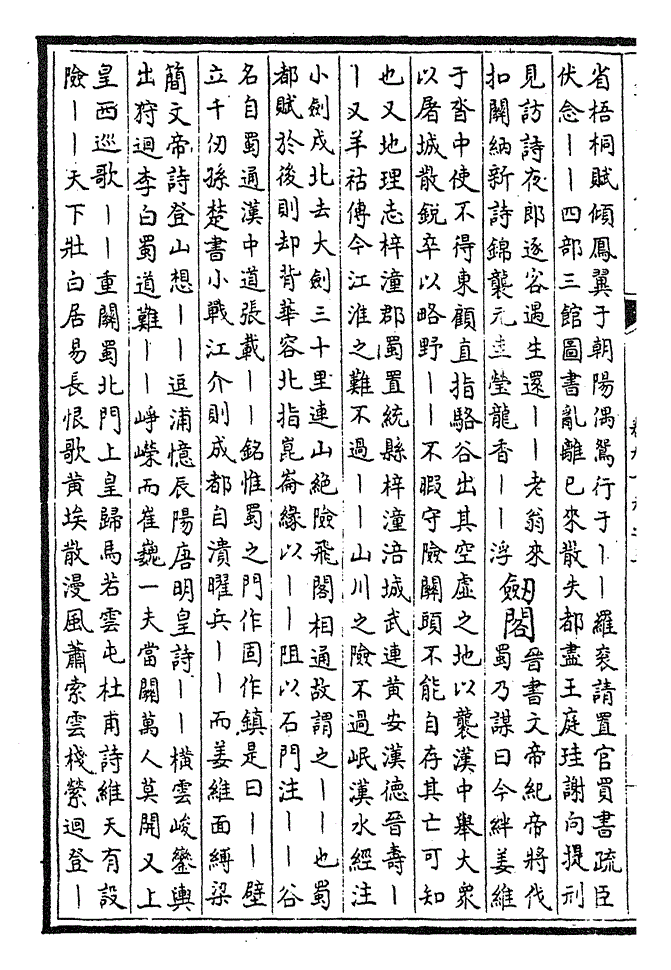 省梧桐賦傾鳳翼于朝陽偶鴛行于——羅衮請置官買書疏臣
伏念——四部三館圖書亂離已來散失都盡王庭珪謝向提刑
見訪詩夜郎逐客遇生還——老翁來
扣關納新詩錦襲元圭瑩龍香——浮
劒閣
晉書文帝紀帝將伐
蜀乃謀曰今絆姜維
于沓中使不得東顧直指駱谷出其空虛之地以襲漢中舉大衆
以屠城散銳卒以略野——不暇守險關頭不能自存其亡可知
也又地理志梓潼郡蜀置統縣梓潼涪城武連黃安漢德晉壽—
—又羊祜傳今江淮之難不過——山川之險不過岷漢水經注
小劍戍北去大劍三十里連山絕險飛閣相通故謂之——也蜀
都賦於後則却背華容北指崑崙緣以——阻以石門注——谷
名自蜀通漢中道張載——銘惟蜀之門作固作鎮是曰——壁
立千仞孫楚書小戰江介則成都自潰曜兵——而姜維面縛梁
簡文帝詩登山想——逗浦憶辰陽唐明皇詩——橫雲峻鑾輿
出狩迴李白蜀道難——崢嶸而崔巍一夫當關萬人莫開又上
皇西巡歌——重關蜀北門上皇歸馬若雲屯杜甫詩維天有設
險——天下壯白居易長恨歌黃埃散漫風蕭索雲棧縈迴登—